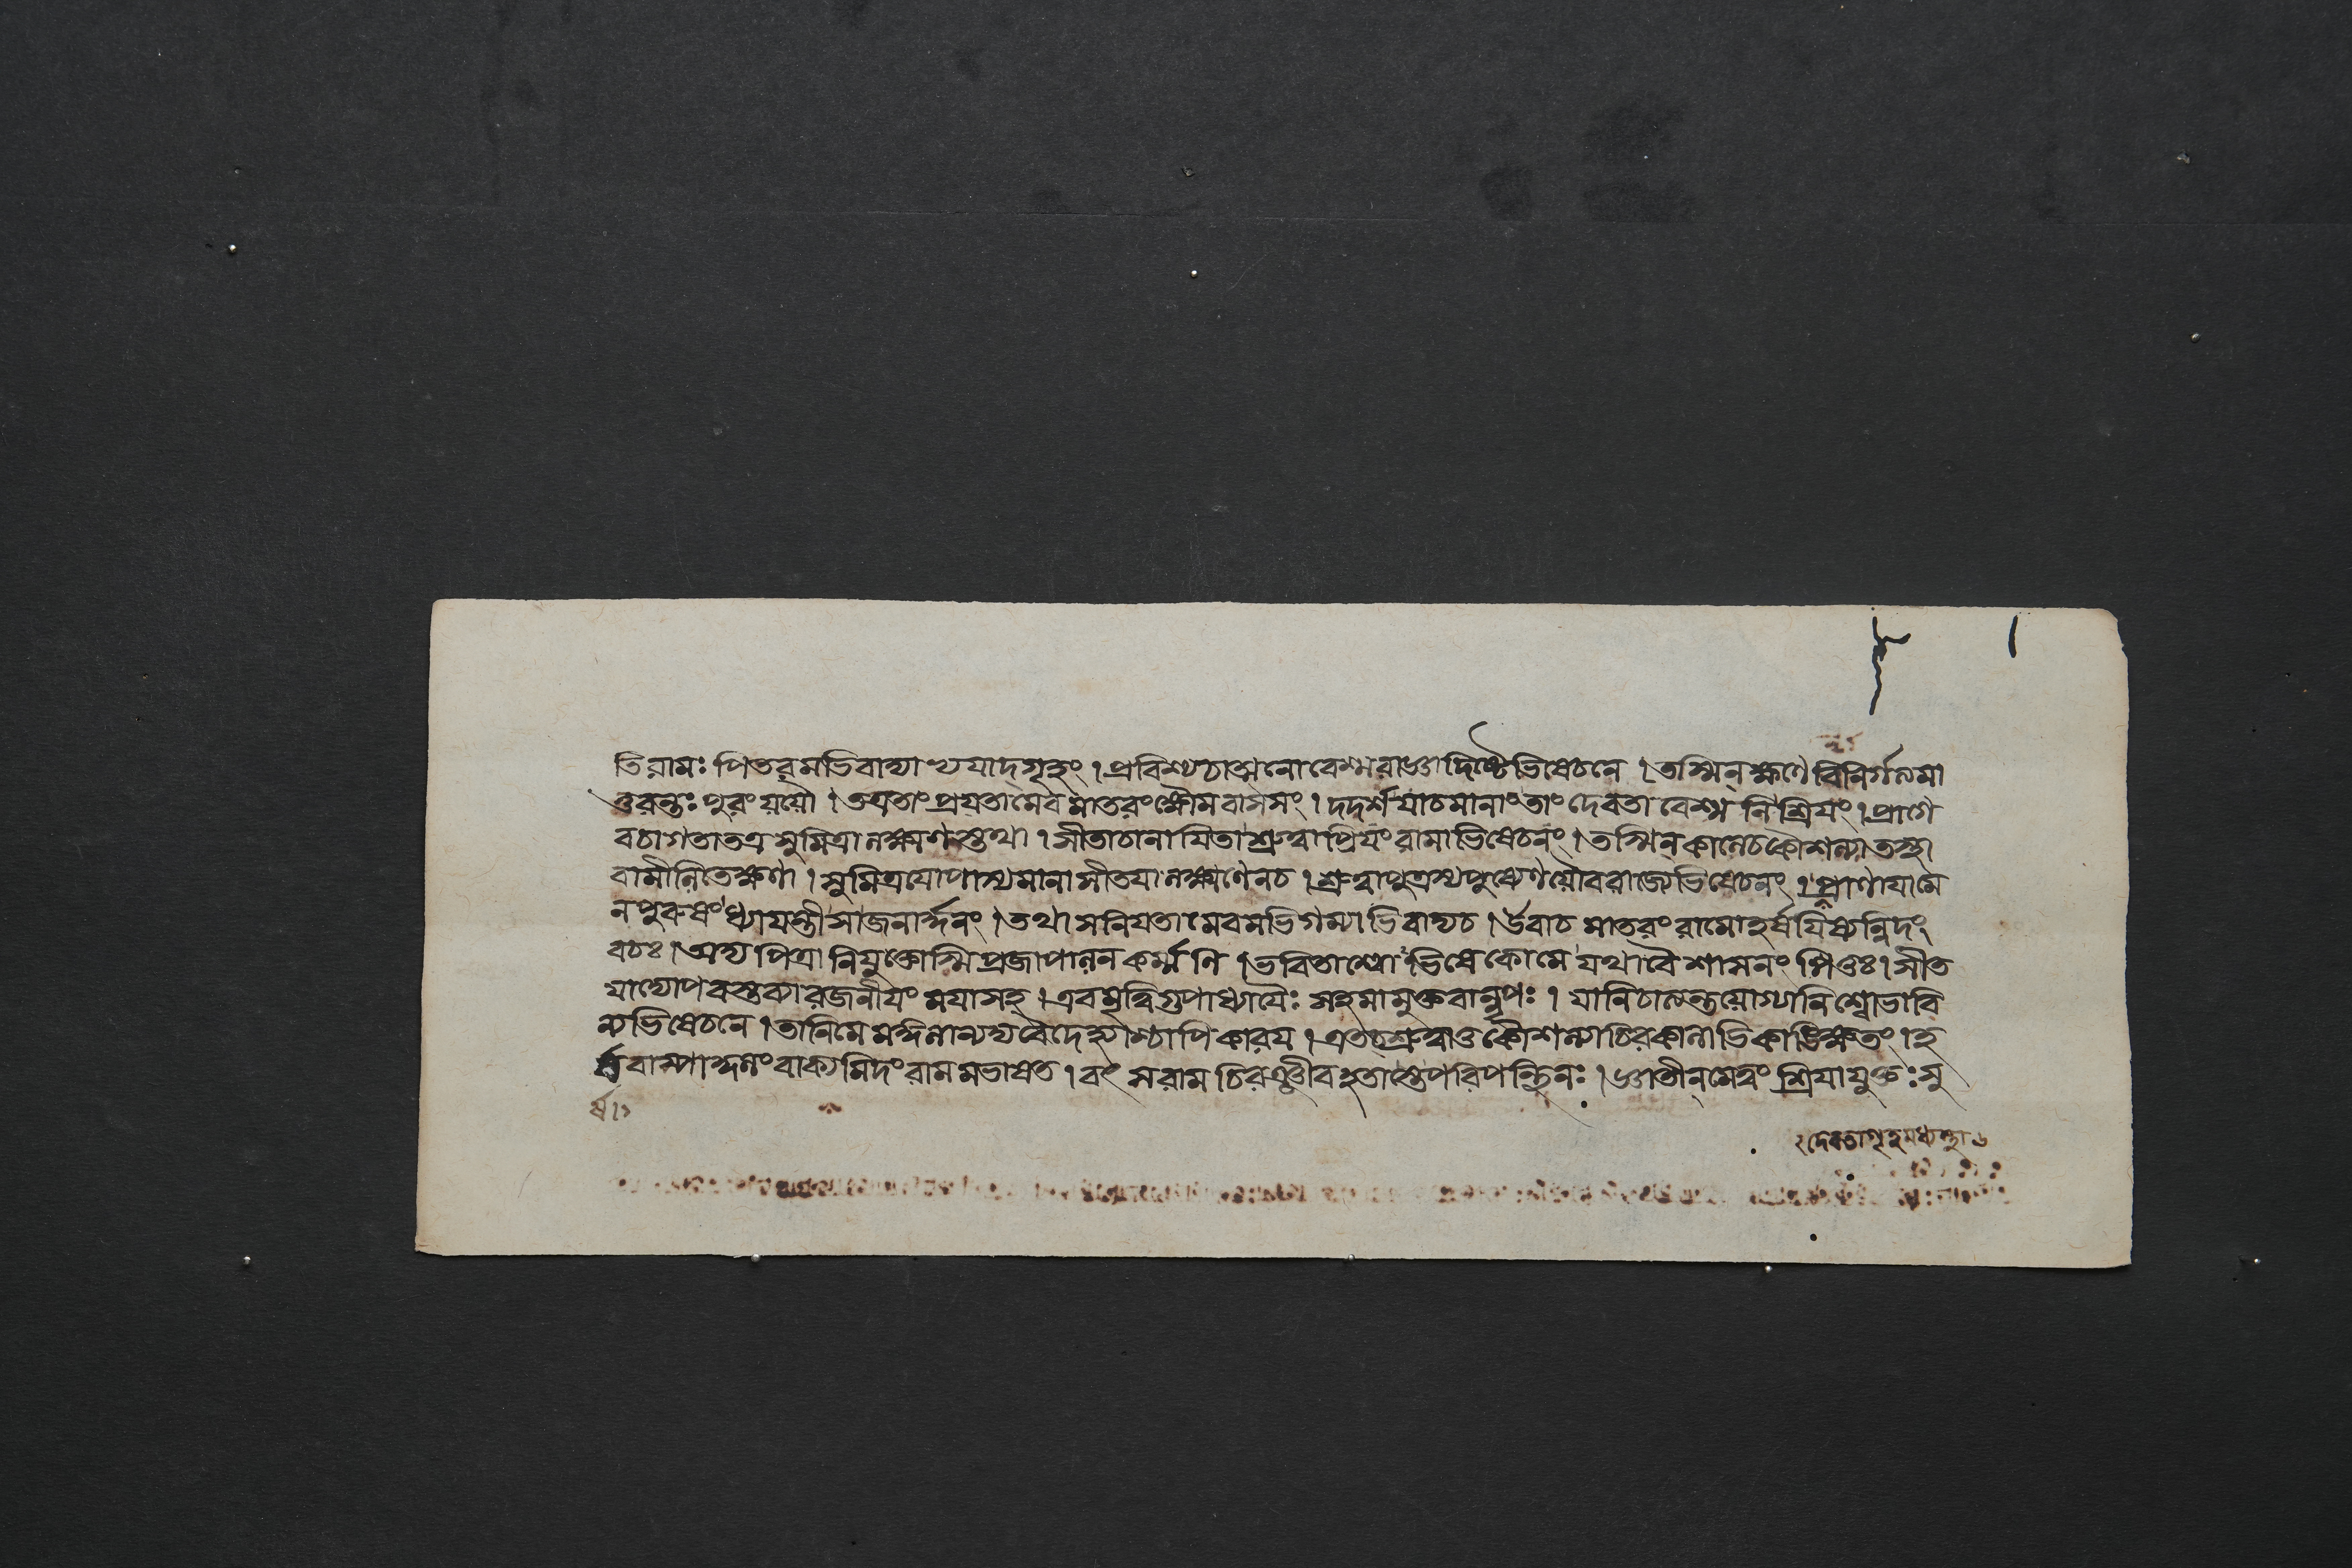 তি রামঃ পিতরমভিবাদ্যাভ্যযাদ্গৃহং । প্রবিশ্যচাত্মনোবেশ্মরাজ্ঞাদিষ্টেভিষেচনে । তস্মিন্ক্ষণে বিনির্গত্যমা
তুরন্তঃ পুরং যযৌ । তত্রতাং প্রযতামেব মাতরং ক্ষৌমবাসসং । দদর্শ যাচমানাং তাং দেবতা বেশ্ম নি শ্রিযং । প্রাগে
বচাগতাতত্র সুমিত্রা লক্ষ্মণস্তথা । সীতাচানাযিতা শ্রুত্বাপ্রিযং রামাভিষেচনং । তস্মিন্ কালেচকৌশল্যা তস্থা
বামীলিতেক্ষণা । সুমিত্রযোপাস্যমানা সীতযা লক্ষ্মণেনচ । শ্রুত্বাপুত্রস্যপুষ্যেণযৌবরাজ্যেভিষেচনং । প্রাণাযামে
নপুরুষং ধ্যাযন্তী সাজনার্দ্দনং । তথা সনিযতামেবমভিগম্যাভিবাদ্যচ । উবাচ মাতরং রামোহর্ষযিষ্যন্নিদং
বচঃ । অম্ব পিত্রা নিযুক্তোস্মি প্রজাপালন কর্ম্মনি । ভবিতাশ্বোভিষেকোমে যথাবৈ শাসনং পিতুঃ । সীত
যাপ্যোপবস্তব্যারজনীযং মযাসহ । এবমৃত্বিগুপাধ্যাযৈঃ সহমামুক্তবান্নৃপঃ । যানিচাত্যন্তযোগ্যানিশ্বোভাবি
ন্যভিষেচনে । তানিমে মঙ্গলান্যদ্যবৈদেহ্যাশ্চাপি কারয । এতচ্ছ্রুত্বাতু কৌশল্যাচিরকালাভিকাঙ্ক্ষিতং । হ
র্ষবাষ্পাকুলং বাক্যমিদং রামমভাষত । বৎ সরাম চিরঞ্জীব হতাস্তেপরিপন্থিনঃ । জ্ঞাতীন্মেত্বং শ্রিযাযুক্তঃ সু
র্ষা
২দেবতাগৃহমধ্যস্থা৬